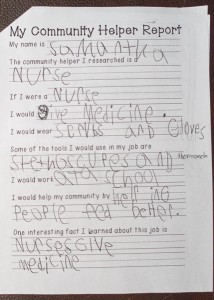 My Community Helper Report
My name is Samantha
The community helper I researched is a
Nurse
If I were a Nurse
I would give Medicine.
I would wear Scrubs and Gloves
Some of the tools I would use in my job are
Stethoscopes and
I would work at a School
I would help my community by helping
People feel better.
One interesting fact I learned about this job is
Nurses Give
medicine